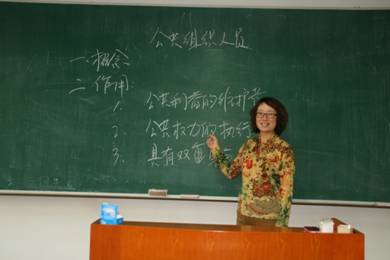 公共组织人员
一、概念
二、作用：
1. 公共利益的维护者
2. 公共权力的执行
3. 具有双重